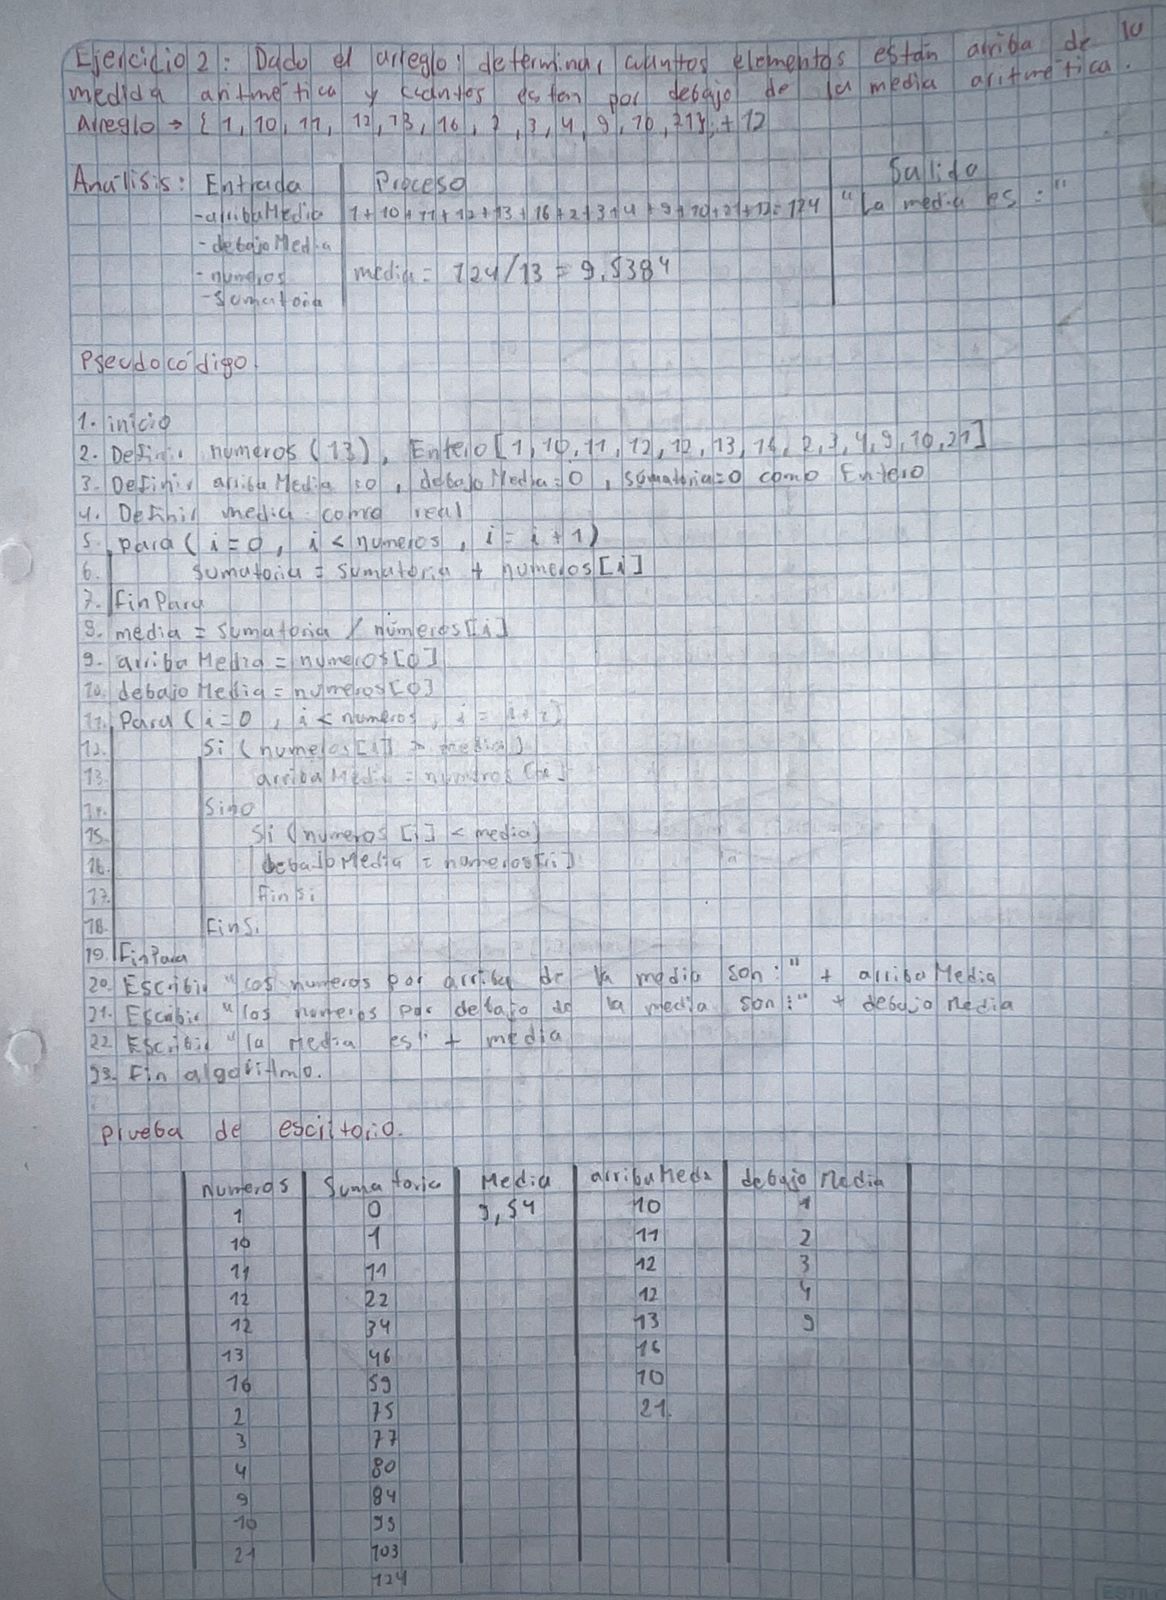 Ejercicio 2: Dado el arreglo: determinar cuantos elementos están arriba de la
medida aritmética y cuantos estan por debajo de la media aritmética.
Arreglo → { 1, 10, 11, 12, 13, 16, 2, 3, 4, 9, 10, 21}, + 12
Análisis: Entrada Proceso Salida
-arribaMedia 1+10+11+12+13+16+2+3+4+9+10+21+12=124 "La media es:"
-debajoMedia
-numeros media = 124/13 = 9,5384
-Sumatoria
Pseudocódigo.
1. inicio
2. Definir numeros (13), Entero [1, 10, 11, 12, 12, 13, 16, 2, 3, 4, 9, 10, 21]
3. Definir arribaMedia =0, debajoMedia=0, sumatoria=0 como Entero
4. Definir media como real
5. para (i=0, i < numeros, i = i + 1)
6. Sumatoria = Sumatoria + numeros[i]
7. FinPara
8. media = sumatoria / números[i]
9. arribaMedia = numeros[0]
10. debajoMedia = numeros[0]
11. Para (i=0, i < numeros,
12. Si (numeros[i] > media)
13. arribaMedia = numeros
14. Sino
15. Si (numeros [i] < media)
16. debajoMedia = numeros[i]
17. Finsi
18. FinSi
19. FinPara
20. Escribir "Los numeros por arriba de la media son:" + arribaMedia
21. Escribir "los numeros por debajo de la media son:" + debajoMedia
22 Escribir "la Media es" + media
23. Fin algoritmo.
Prueba de escritorio.
numeros Sumatoria Media arribaMedia debajo Media
1 0 9,54 10 1
10 1 11 2
11 11 12 3
12 22 12 4
12 34 13 9
13 46 16
16 59 10
2 75 21.
3 77
4 80
9 84
10 93
21 103
124